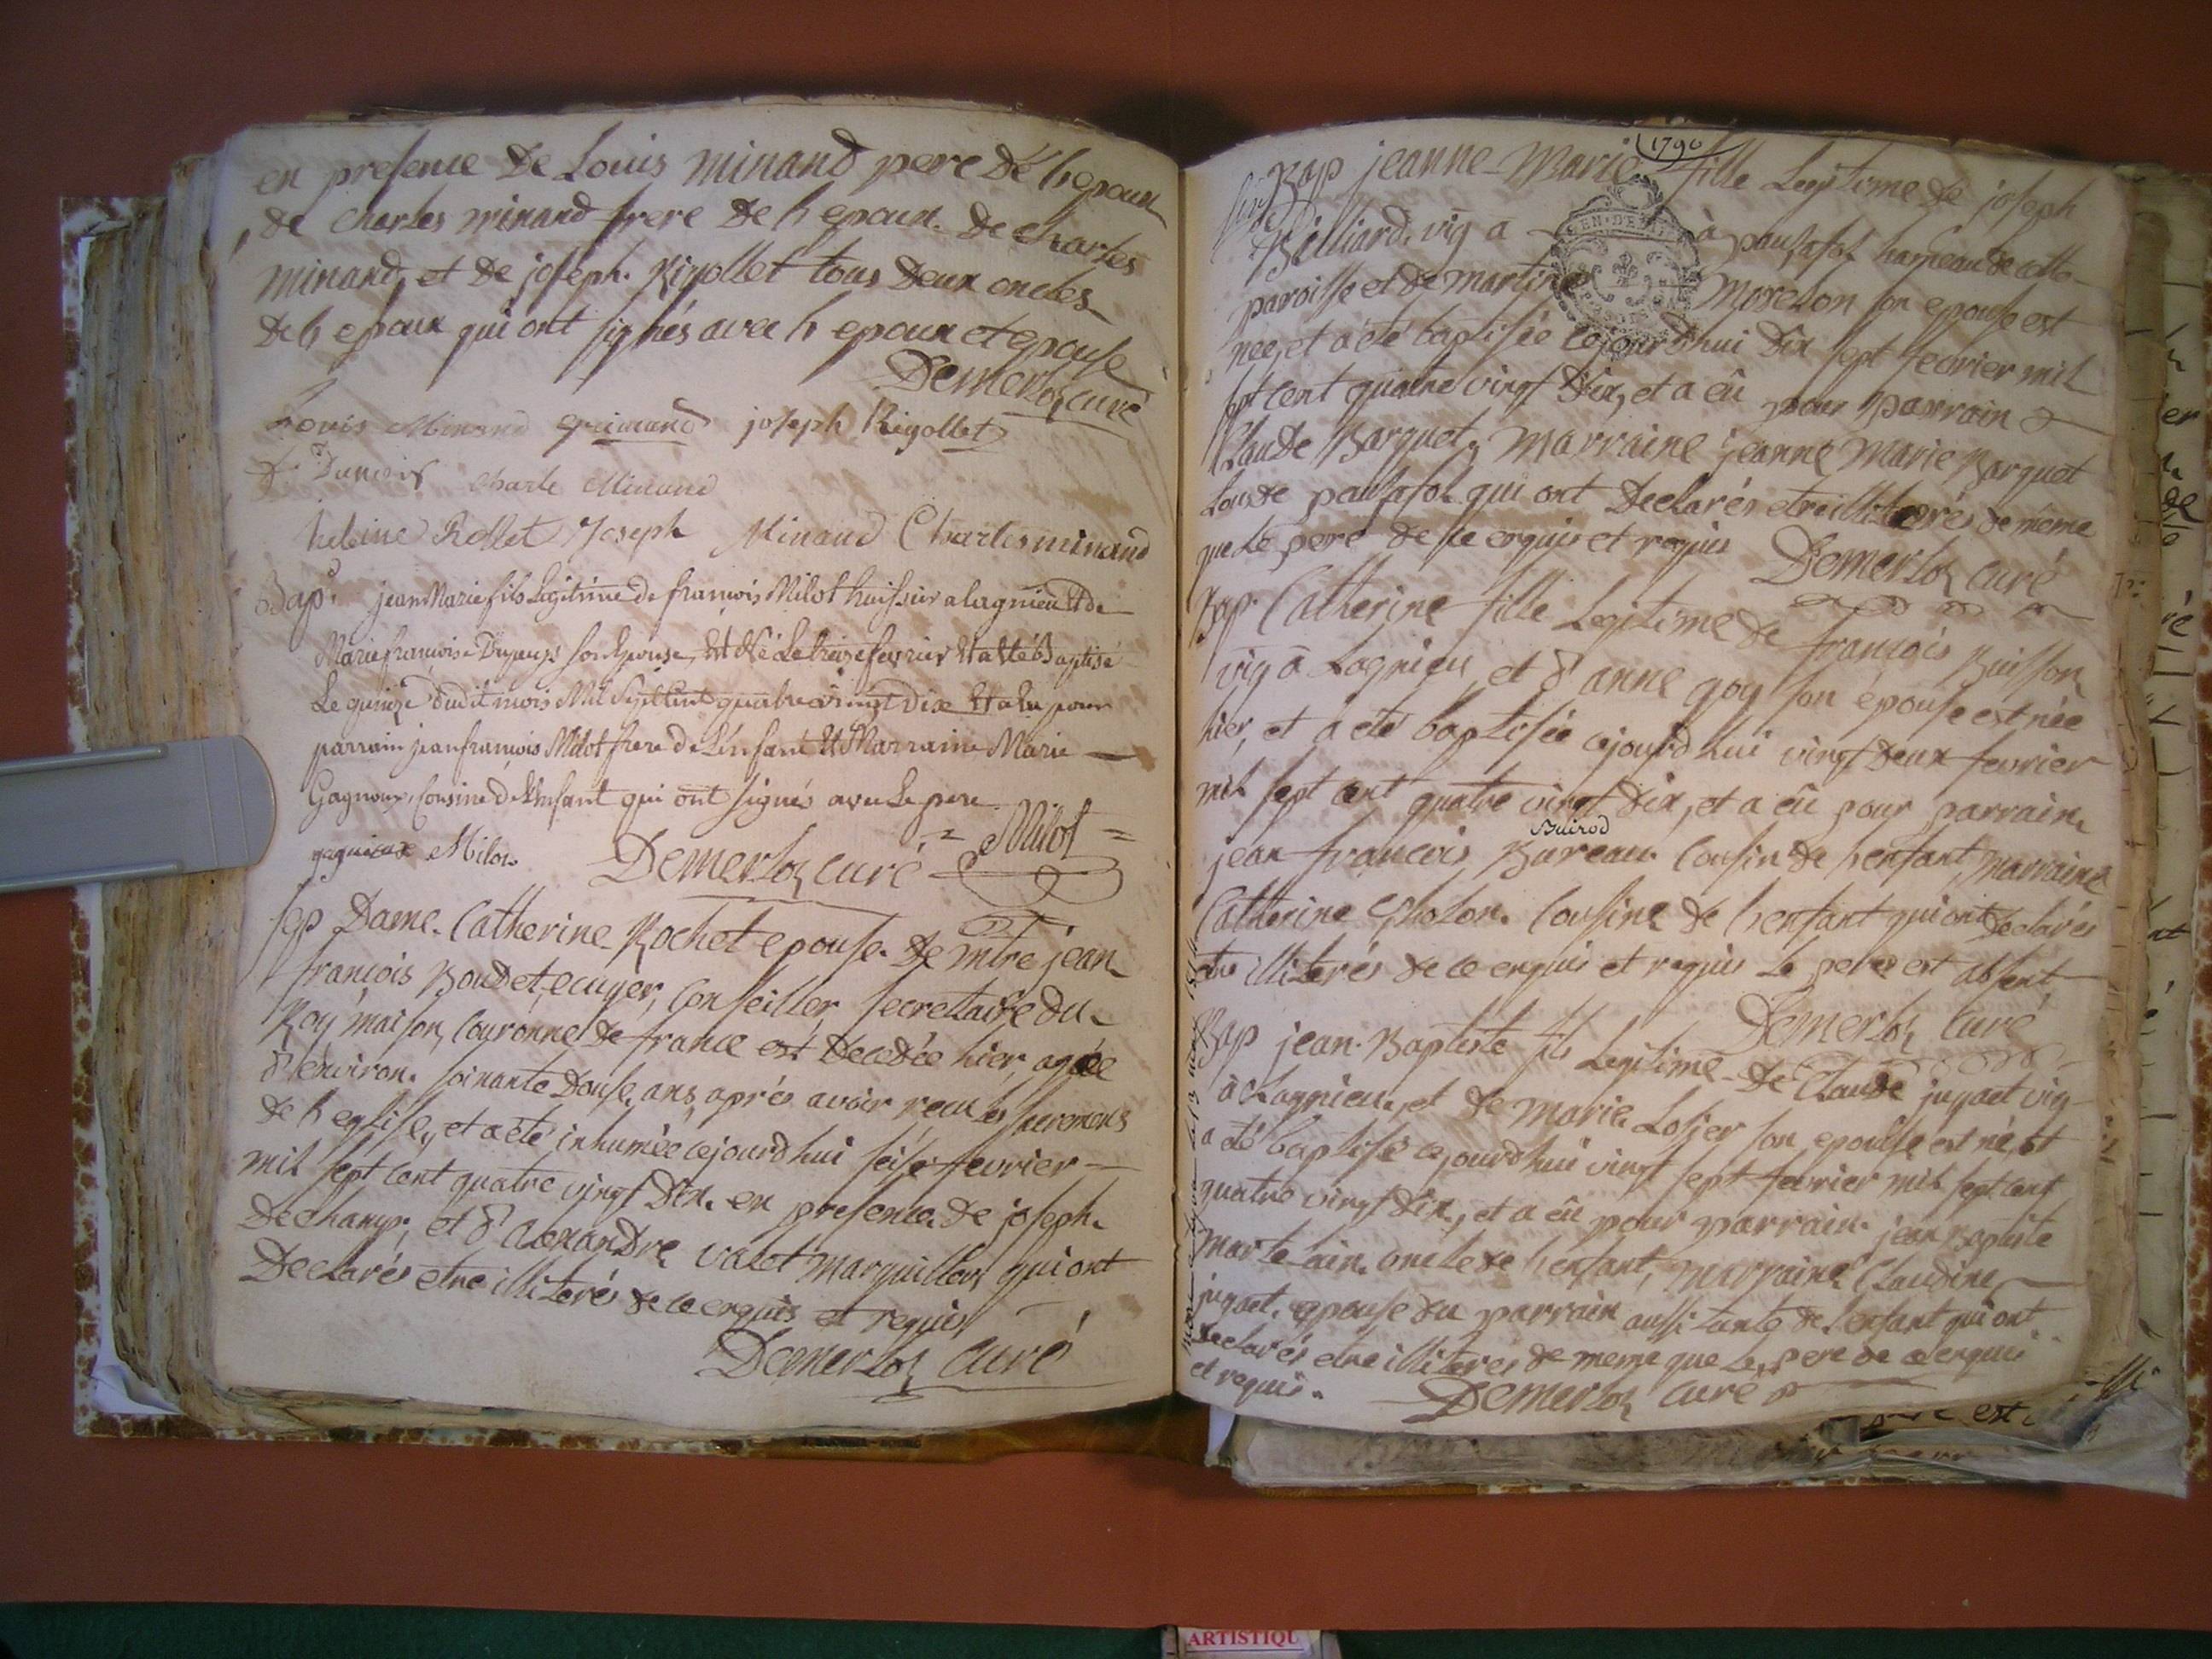 en presence de Louis minand pere de l'epoux
de charles minand frere de l'epoux. de charles
minand, et de joseph. Rigollet tous deux oncles
de l'epoux qui ont signés avec l'epoux et epouse
Demerloz curé
Louis Minand joseph Rigollet
charle Minand
heleine Rollet Joseph Minand Charles minand
Bap. jean Marie fils Legitime de françois Milot huissier a lagnieu et de
Marie françoise son Epouse, est Né Le treize fevrier et a été Baptisé
Le quinze dudit mois Mil Sept Cent quatre vingt Dix et a Eu pour
parrain jean françois Milot frere de L'enfant et Marraine Marie
Gagnoux, Cousine de l'Enfant qui ont signés avec Le pere.
gagnieux Milot = Milot =
Demerloz curé
sep Dame. Catherine Rochet epouse. de mtre jean
françois Boudet, ecuyer, conseiller secretaire du
Roy maison, couronne de france est decedée hier, agée
d'environ. soixante douse, ans, après avoir reçu les sacremens
de l'eglise, et a été inhumée cejourd'hui seise fevrier
mil sept cent quatre vingt dix. en presence. de joseph.
Dechamp; et d'alexandre valet marguilliers qui ont
Declarés etre illiterés de ce enquis et requis
Demerloz Curé
1790
Bap jeanne-Marie fille Legitime de joseph
Billiard. vig à à pausafol hameau de cette
paroisse et de martine Morelon son epouse est
née, et a été baptisée cejourd'hui dix sept fevrier mil
sept cent quatre vingt dix, et a eû pour parrain
Claude Barquet, marraine jeanne Marie Barquet
tous de pausafol qui ont Declarés etre illiterés de même
que le pere de ce enquis et requis Demerloz curé
Bap. Catherine fille Legitime de françois Buisson
vig à Lagnieu, et d'anne goy son épouse est née
hier, et a été baptisée cejourd'hui vingt deux fevrier
mil sept cent quatre vingt dix, et a eû pour parrain
Buirod
jean françois Bureau. Cousin de l'enfant, marraine
Catherine Cholon. Cousine de l'enfant qui ont declarés
etre illiterés de ce enquis et requis Le pere est absent
Demerloz Curé
Bap jean-Baptiste fils Legitime de Claude juget vig
à Lagnieu, et de marie Losier son epouse est né, et
a été baptisé cejourd'hui vingt sept fevrier mil sept cent
quatre vingt dix, et a eû pour parrain. jean Baptiste
martelain. oncle de l'enfant, marraine Claudine
juget. epouse du parrain aussi tante de l'enfant qui ont
declarés etre illiterés de meme que le pere de ce enquis
et requis. Demerloz curé
ARTISTIQU